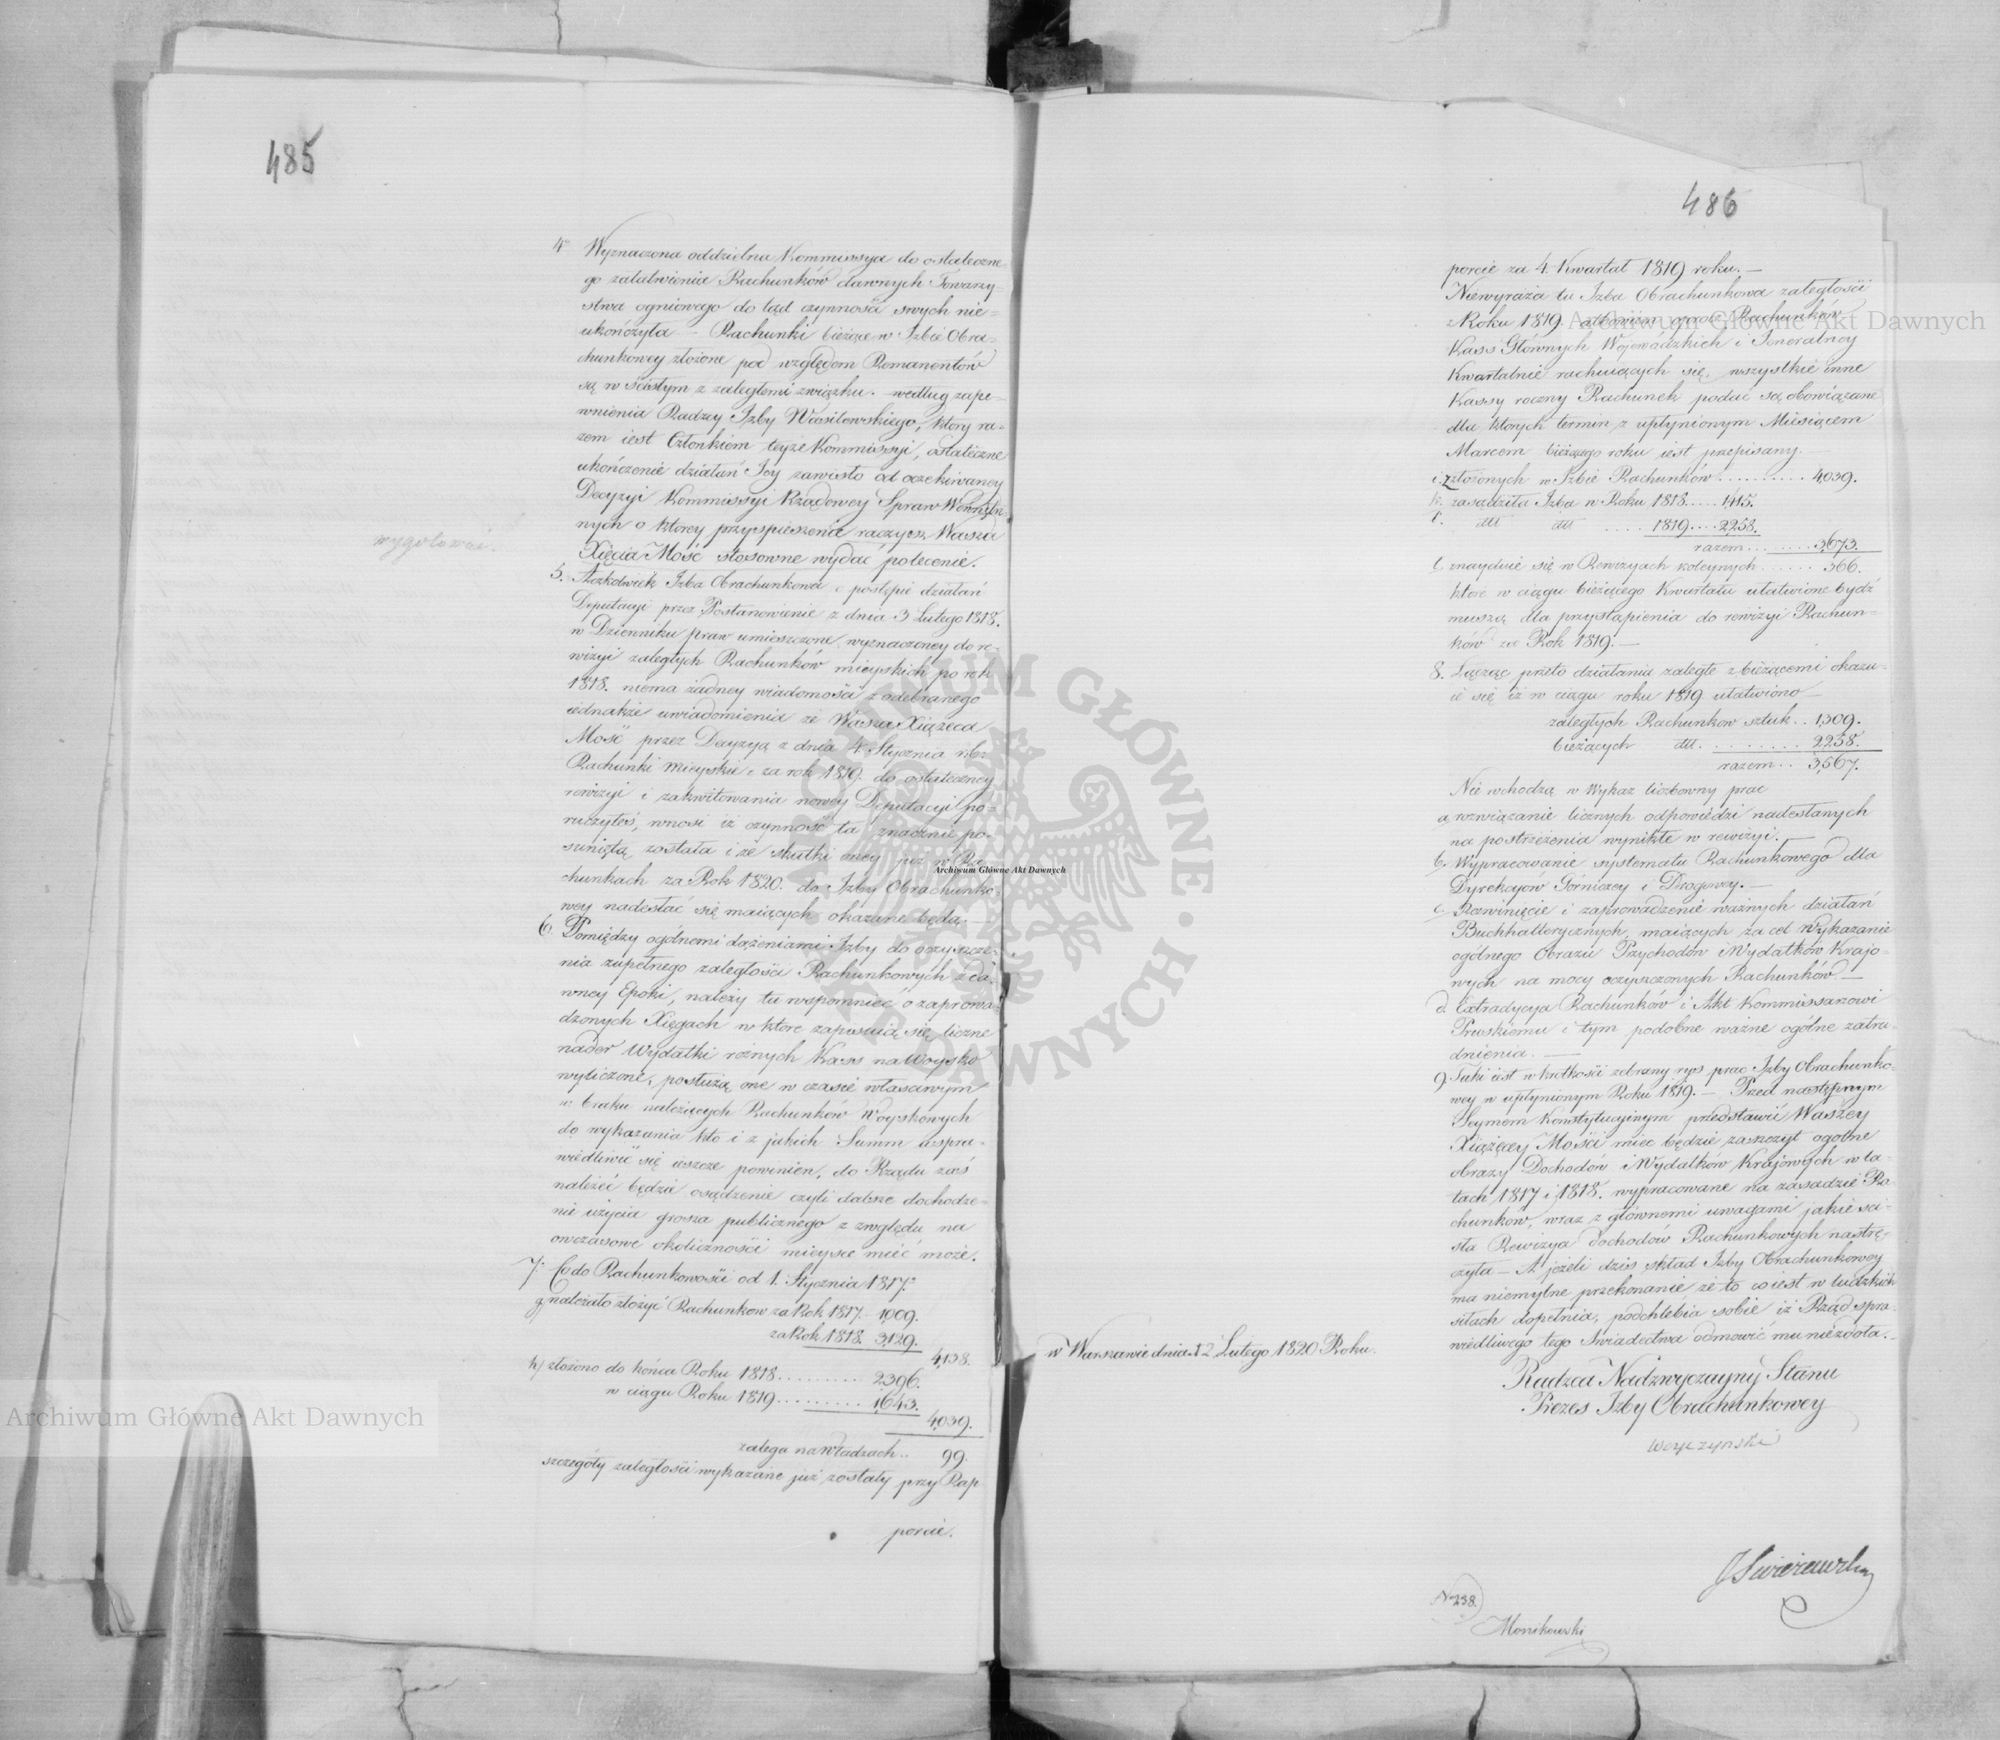 485
4° Wyznaczona oddzielna Kommissya do ostateczne-
go załatwienia Rachunków dawnych Towarzy-
stwa ogniowego do tąd czynności swych nie-
ukończyła – Rachunki bieżące w Izbie Obra-
chunkowey złożone pod względem Remanentów
są w ścisłym z zaległemi związku. według zape-
wnienia Radzcy Izby Wasilewskiego, ktory ra-
zem iest Członkiem teyże Kommissyi, ostateczne
ukończenie działań Jey zawisło od oczekiwaney
Decyzyi Kommissyi Rządowey Spraw Wewnętrz-
nych o ktorey przyspieszenie raczysz Wasza
Xięcia Mość stosowne wydać polecenie.
wygotować.
5. Jlozkolwiek Izba Obrachunkowa o postępie działań
Deputacyi przez Postanowienie z dnia 3 Lutego 1818.
w Dzienniku praw umieszczone, wyznaczoney do re-
wizyi zaległych Rachunków mieyskich po rok
1818. niema żadney wiadomości z odebranego
iednakże uwiadomienia że Wasza Xiążęca
Mość przez Decyzyą z dnia 4. Stycznia r.b.
Rachunki mieyskie za rok 1819. do ostateczney
rewizyi i zakwitowania nowey Deputacyi po-
ruczyłeś, wnosi iż czynność ta znacznie po-
suniętą została i że skutki oney już w Ra-
chunkach za Rok 1820. do Izby Obrachunko-
wey nadesłać się maiących okazane będą. –
6. Pomiędzy ogólnemi dążeniami Izby do oczyszcze-
nia zupełnego zaległości Rachunkowych z da-
wney Epoki, należy tu wspomnieć o zaprowa-
dzonych Xięgach w ktore zapisuią się liczne
nader Wydatki rożnych Kass na Woysko
wyliczone, posłużą one w czasie właściwym
w braku należących Rachunków Woyskowych
do wykazania kto i z jakich Summ uspra-
wiedliwić się ieszcze powinien, do Rządu zaś
należeć będzie osądzenie czyli dalsze dochodze-
nie użycia grosza publicznego z względu na
owczasowe okoliczności mieysce mieć może.
7. Co do Rachunkowości od 1. Stycznia 1817.
g) należało złożyć Rachunkow za Rok 1817 – 1009.
za Rok 1818. 3,129.
4,138.
h) złożono do końca Roku 1818 .......... 2,396.
w ciągu Roku 1819 .......... 1,643.
4,039.
zalega na Władzach .. 99.
szczegóły zaległości wykazane już zostały przy Rap
porcie.
486
porcie za 4. Kwartał 1819 roku. –
Niewyraża tu Izba Obrachunkowa zaległości
z Roku 1819. albowiem oprócz Rachunków
Kass Głównych Wojewódzkich i Jeneralney
Kwartalnie rachuiących się, wszystkie inne
Kassy roczny Rachunek podać są obowiązane
dla ktorych termin z upłynionym Miesiącem
Marcem bieżącego roku iest przepisany. –
i. z złożonych w Izbie Rachunków .......... 4,039.
k. zasądziła Izba w Roku 1818 ..... 1,415.
dtt dtt ..... 1819 .... 2,258.
razem ........ 3,673.
l. znayduie się w Rewizyach koleynych ...... 366.
ktore w ciągu bieżącego Kwartału ułatwione bydź
muszą dla przystąpienia do rewizyi Rachun-
ków za Rok 1819. –
8. Łącząc przeto działania zaległe z bieżącemi okazu-
ie się iż w ciągu roku 1819 ułatwiono –
zaległych Rachunkow sztuk .. 1,309.
bieżących dtt. ......... 2258.
razem .. 3,567.
Nie wchodzą w Wykaz liczbowny prac
a, rozwiązanie licznych odpowiedzi nadesłanych
na postrzeżenia wynikłe w rewizyi. –
b. Wypracowanie systematu Rachunkowego dla
Dyrekcyów Górniczey i Drogowey. –
c. Rozwinięcie i zaprowadzenie ważnych działań
Buchhalterycznych, maiących za cel Wykazanie
ogólnego Obrazu Przychodów i Wydatków Krajo-
wych na mocy oczyszczonych Rachunków –
d. Extradycya Rachunków i Akt Kommissarzowi
Pruskiemu i tym podobne ważne ogólne zatru-
dnienia. –
9. Taki iest w krótkości zebrany rys prac Izby Obrachunko-
wey w upłynionym Roku 1819. – Przed następnym
Seymem Konstytucyinym przedstawić Waszey
Xiążęcey Mości mieć będzie zaszczyt ogólne
obrazy Dochodów i Wydatków Krajowych w la-
tach 1817 i 1818. wypracowane na zasadzie Ra-
chunkow, wraz z głównemi uwagami jakie ści-
sła Rewizya dochodów Rachunkowych nastrę-
czyła – A jeżeli dzis skład Izby Obrachunkowey
ma niemylne przekonanie że to co iest w ludzkich
siłach dopełnia, podchlebia sobie iż Rząd spra-
wiedliwego tego Swiadectwa odmowić mu niezdoła. –
w Warszawie dnia 12 Lutego 1820 Roku.
Radzca Nadzwyczayny Stanu
Prezes Izby Obrachunkowey
Woyczyński
N 238.
Monikowski
Archiwum Główne Akt Dawnych
Archiwum Główne Akt Dawnych
Archiwum Główne Akt Dawnych
ARCHIWUM GŁÓWNE AKT DAWNYCH